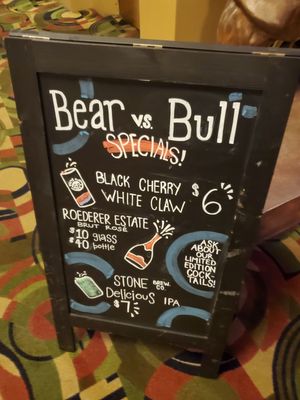 Bear vs. Bull
SPECIALS!
BLACK CHERRY
WHITE CLAW
$6
ROEDERER ESTATE
BRUT ROSÉ
$10 glass
$40 bottle
ASK
ABOUT
OUR
LIMITED
EDITION
COCK-
TAILS!
STONE BREW. CO.
Delicious IPA
$7